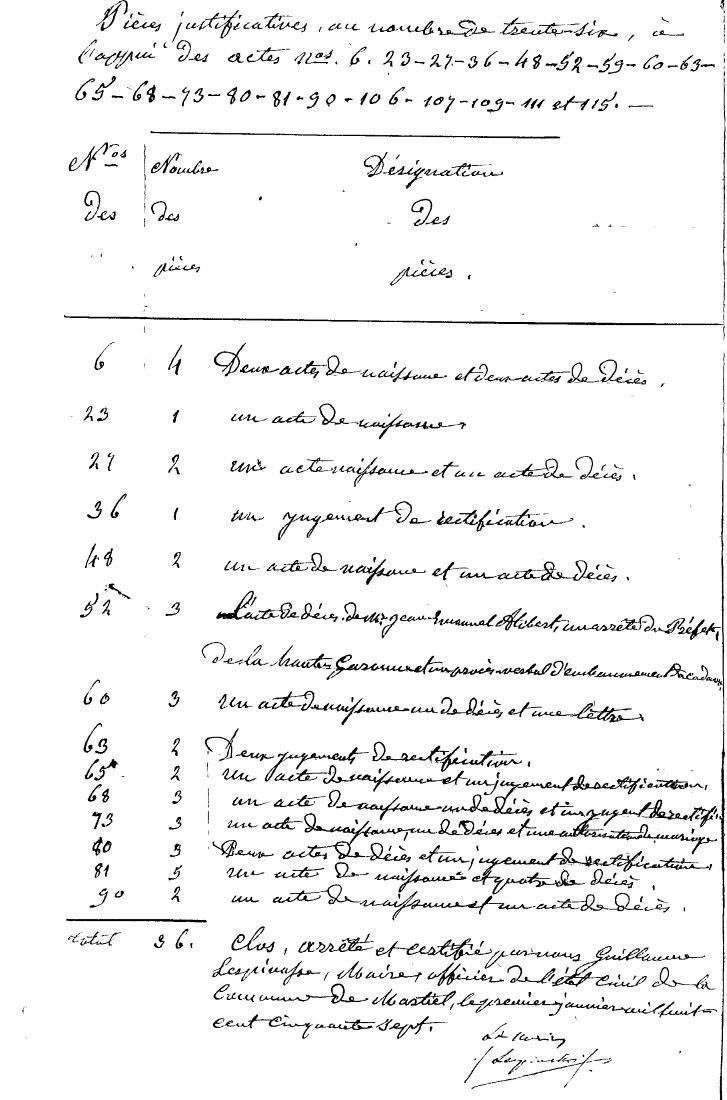 Pièces justificatives, au nombre de trente-six, à
l'appui des actes nos. 6. 23-27-36-48-52-59-60-63-
65-68-73-80-81-90-106-107-109-111 et 115.-
Nros Nombre Désignation
des des des
pièces pièces.
6 4 Deux actes de naissance et deux actes de décès.
23 1 un acte de naissance
27 2 un acte naissance et un acte de décès.
36 1 un jugement de rectification.
48 2 un acte de naissance et un acte de décès.
52 3 L'acte de décès de Mr. Jean Emanuel Alibert, un arrêté du Préfet,
de la haute Garonne et un procès-verbal d'embaumement
60 3 un acte de naissance un de décès et une lettre.
63 2 Deux jugements de rectification.
65 2 un acte de naissance et un jugement de rectification.
68 3 un acte de naissance un de décès et un jugent de rectifi
73 3 un acte de naissance, un de décès et une autorisation de mariage
80 3 Deux actes de décès et un jugement de rectification,
81 5 un acte de naissance et quatre de décès.
90 2 un acte de naissance et un acte de décès.
total 36. Clos, arrêté et certifié par nous Guillaume
Lespinasse, Maire, officier de l'état civil de la
Commune de Martiel, le premier janvier mil huit-
cent cinquante sept.
Le Maire
Lespinasse